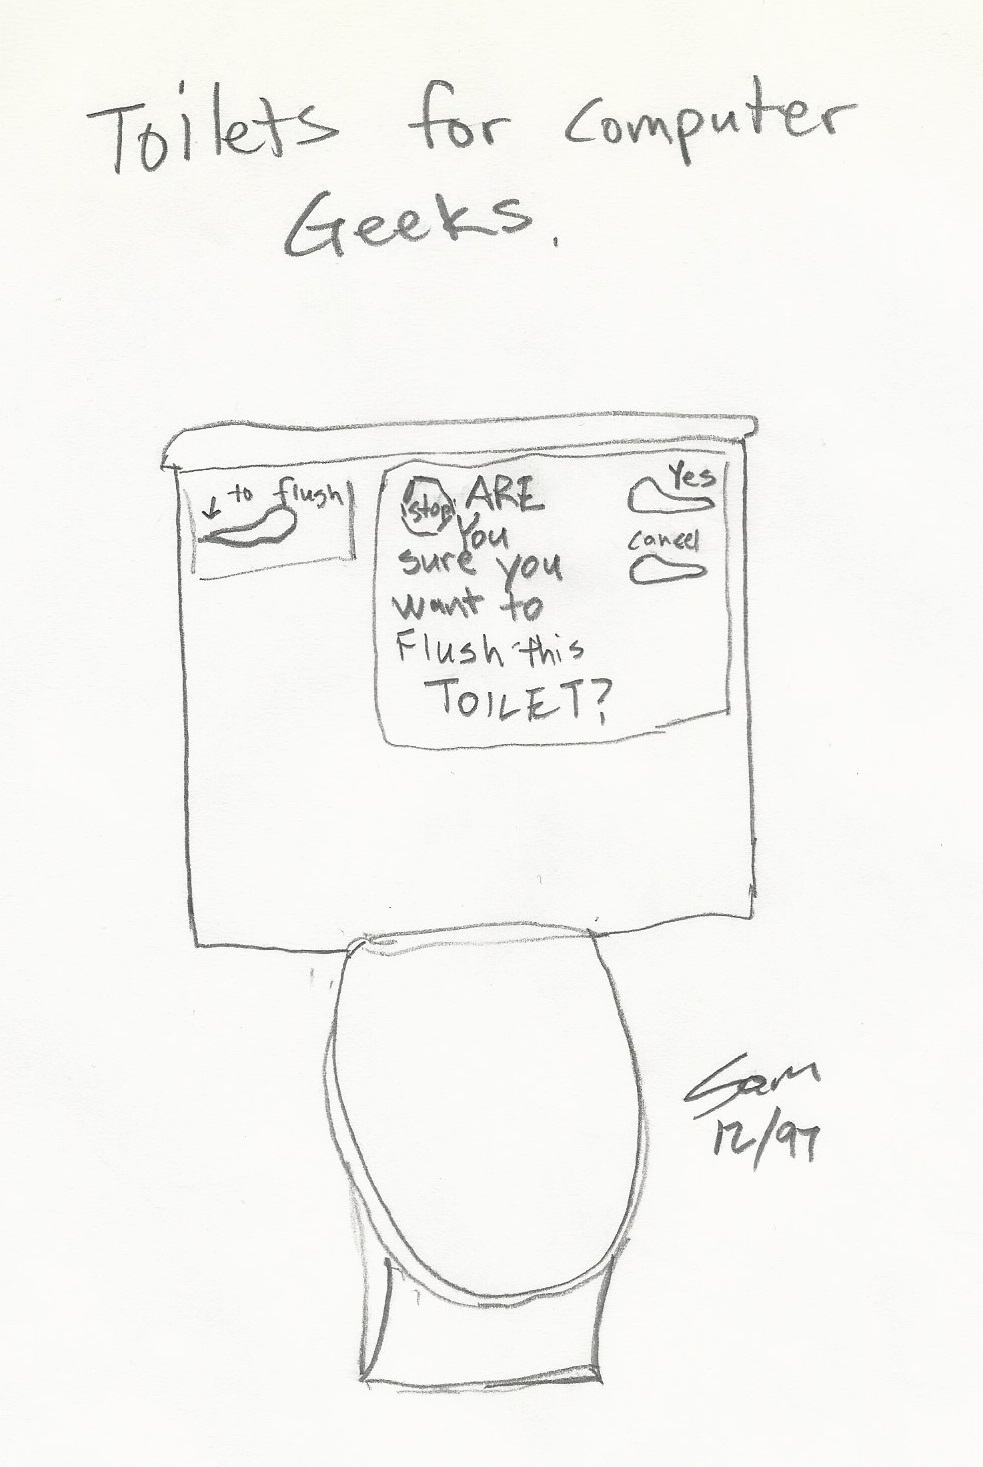 Toilets for computer
Geeks.
↓ to flush
stop ARE
You
sure you
want to
Flush this
TOILET?
Yes
cancel
Sam
12/97